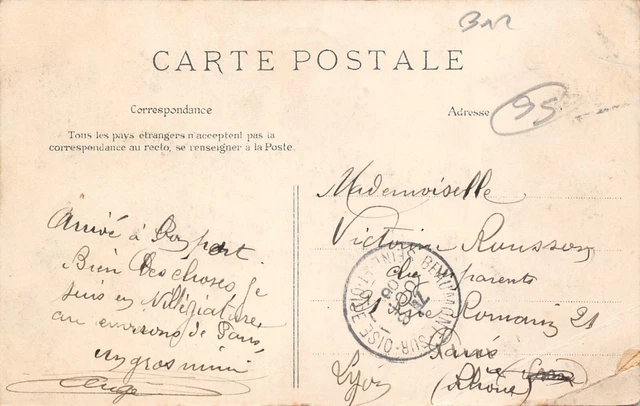 CARTE POSTALE
Correspondance
Adresse
95
Tous les pays étrangers n'acceptent pas la
correspondance au recto, se renseigner à la Poste.
Arrivé à bon port
Bien des choses, je
suis en Villégiature
au environs de Paris,
un gros mimi
Mademoiselle
Victorine Rousson
chez parents
91 rue Romain 21
Lyon (Rhône)
BEAUMONT-SUR-OISE
SEINE-ET-OISE